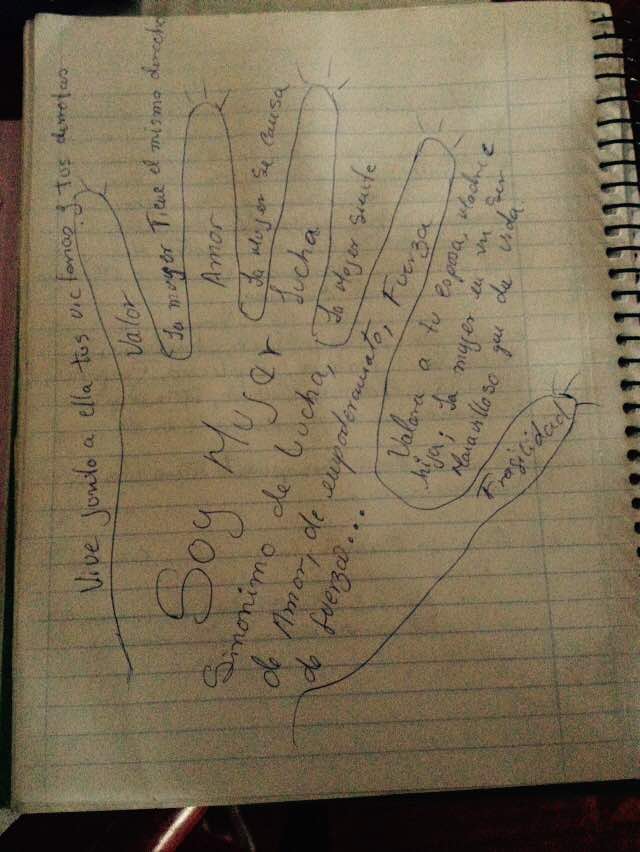 Vive junto a ella tus victorias y tus derrotas
Valor
La mujer Tiene el mismo derecho
Amor
La Mujer se cansa
Lucha
La Mujer Siente
Fuerza
Valora a tu esposa, Madre e
hija; La mujer es un Ser
Maravilloso que da vida
Fragilidad
Soy Mujer
Sinonimo de Lucha,
de Amor, de empoderamiento,
de fuerza...